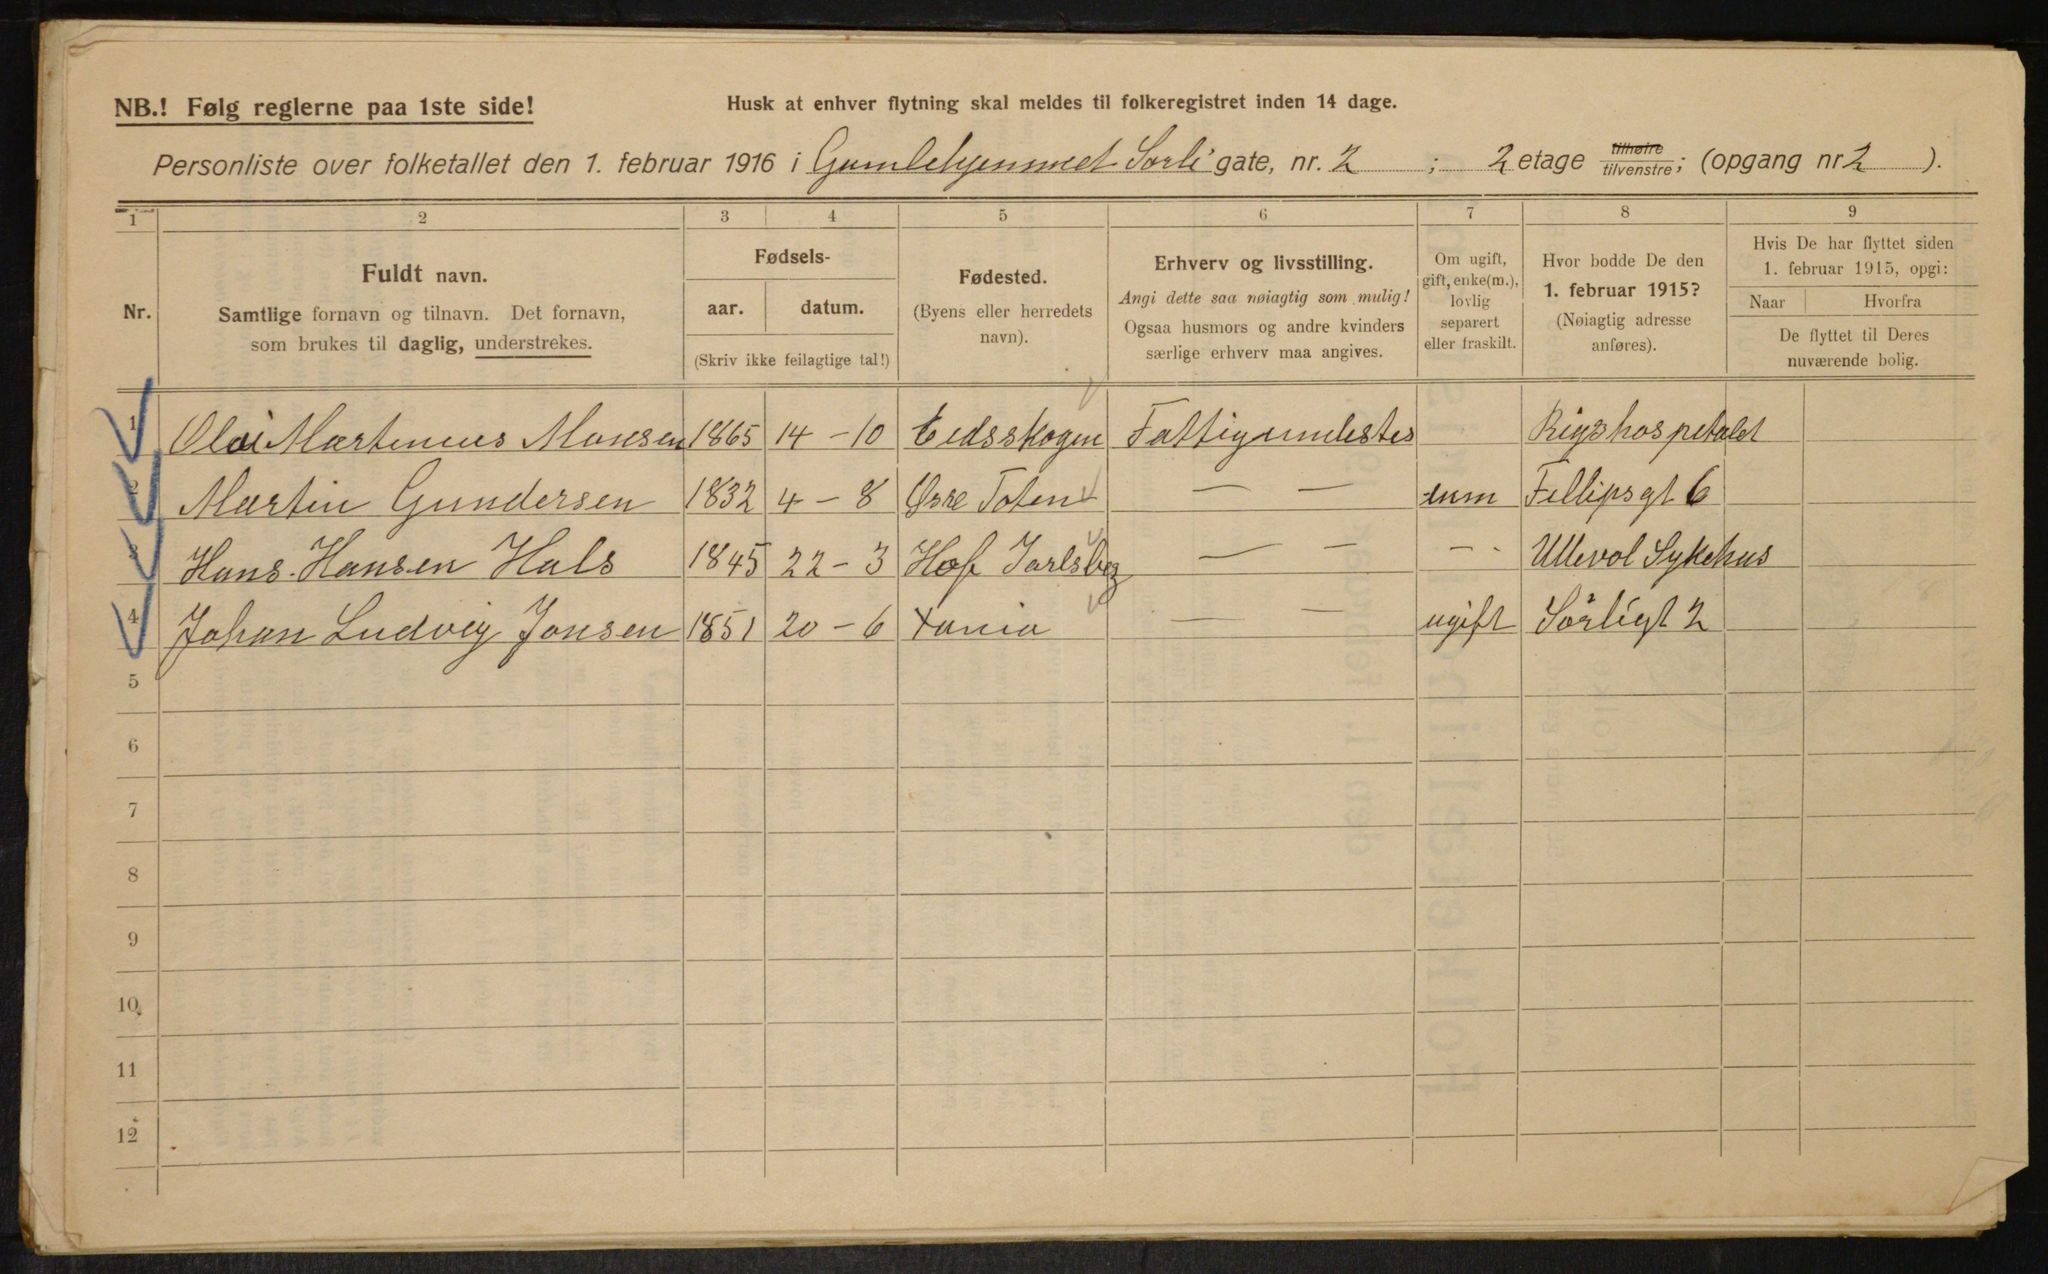 NB.! Følg reglerne paa 1ste side!
Husk at enhver flytning skal meldes til folkeregistret inden 14 dage.
Personliste over folketallet den 1. februar 1916 i Gamlehjemmet Sorli gate, nr. 2 ; 2 etage tilhøire tilvenstre; (opgang nr 2 ).
1 2 3 4 5 6 7 8 9
Nr.
Fuldt navn.
Samtlige fornavn og tilnavn. Det fornavn,
som brukes til daglig, understrekes.
Fødsels-
aar. datum.
(Skriv ikke feilagtige tal!)
Fødested.
(Byens eller herredets
navn).
Erhverv og livsstilling.
Angi dette saa nøiagtig som mulig!
Ogsaa husmors og andre kvinders
særlige erhverv maa angives.
Om ugift,
gift, enke(m.),
lovlig
separert
eller fraskilt.
Hvor bodde De den
1. februar 1915?
(Nøiagtig adresse
anføres).
Hvis De har flyttet siden
1. februar 1915, opgi:
Naar Hvorfra
De flyttet til Deres
nuværende bolig.
1 Olai Martinius Monsen 1865 14 - 10 Eidsskogen Fattigundestøs Rigshospetalet
2 Martin Gundersen 1832 4 - 8 Øsre Toten — — enm Fillipsgt 6
3 Hans Hansen Hals 1845 22 - 3 Hof Jarlsberg — — - - Ullevol Sykehus
4 Johan Ludvig Jonsen 1851 20 - 6 Xania — — ugift Sörligt 2
5
6
7
8
9
10
11
12